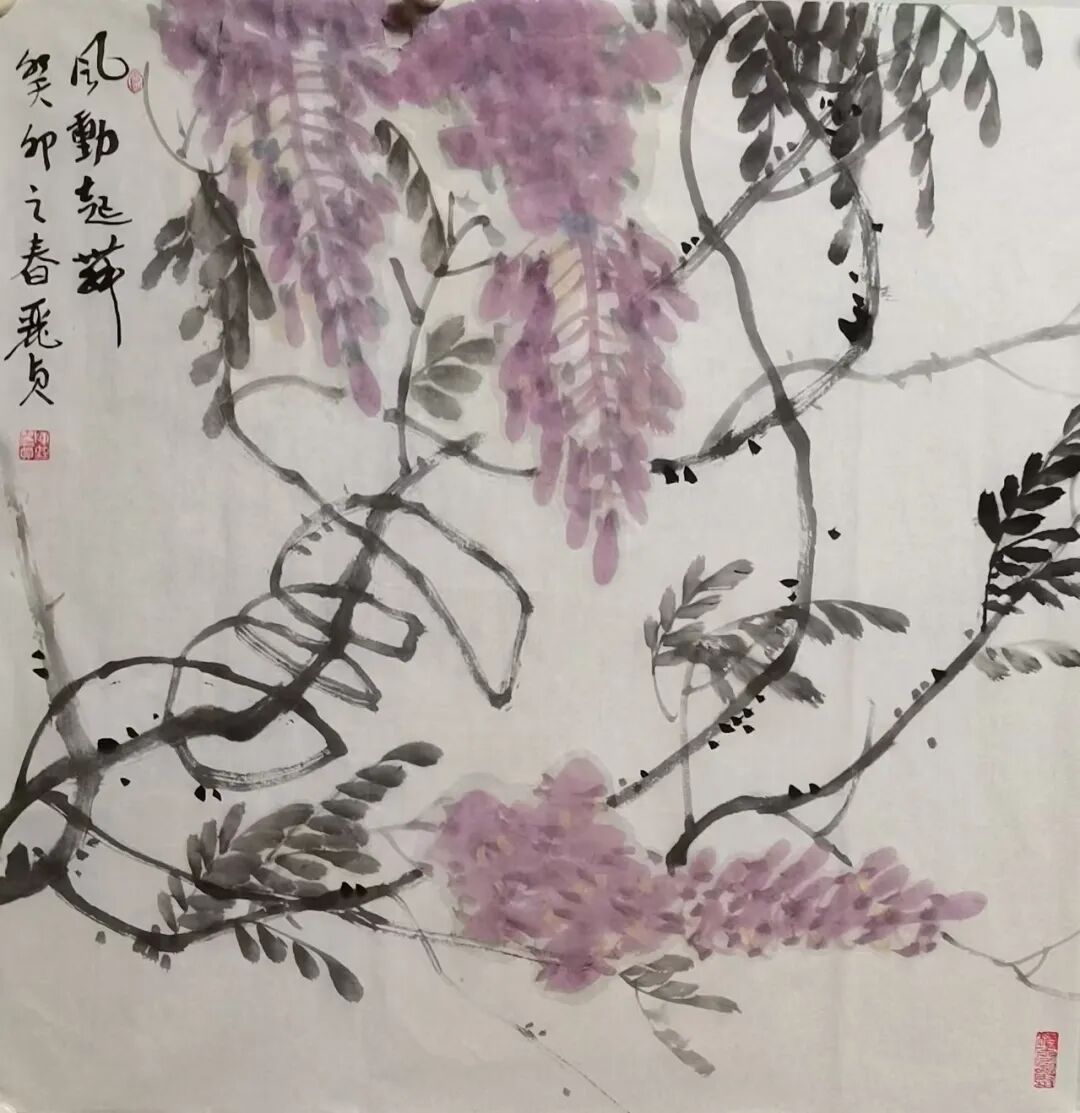 風動起舞
癸卯之春麗貞